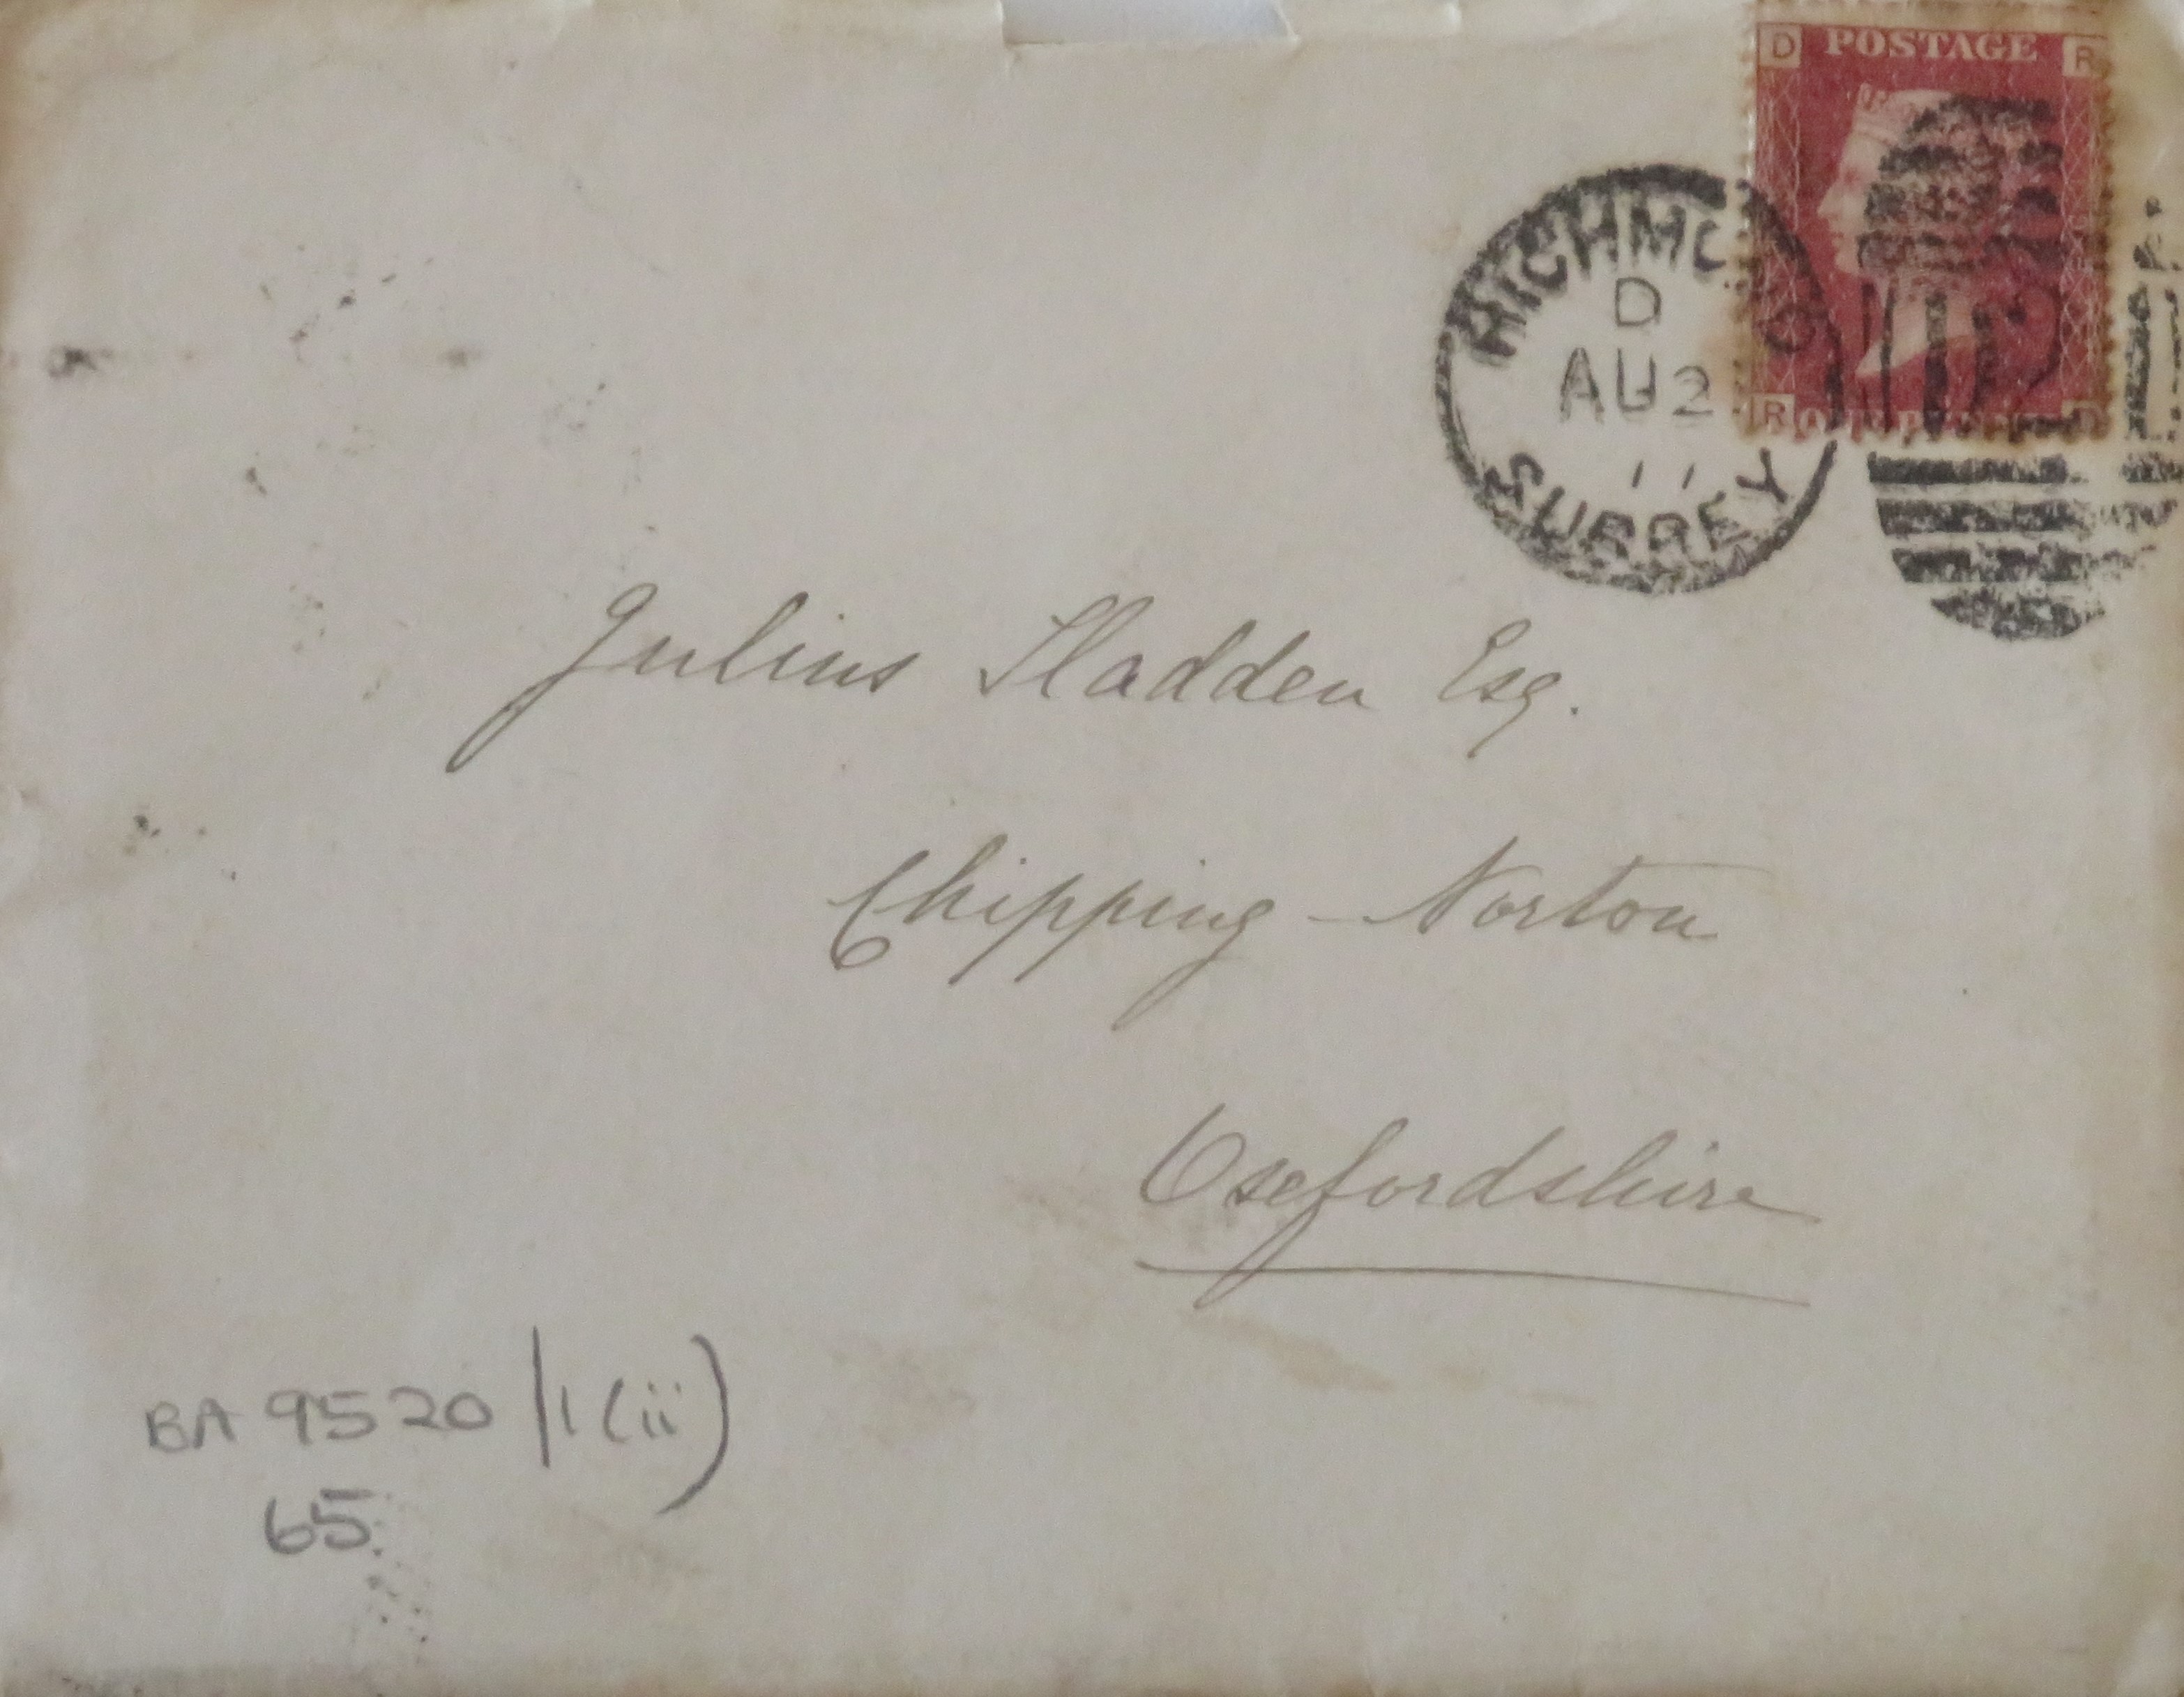 D POSTAGE R
RICHMO
D
AU 2
SURREY
R D
Julius Sladden Esq.
Chipping-Norton
Oxfordshire
BA 9520/1(ii)
65